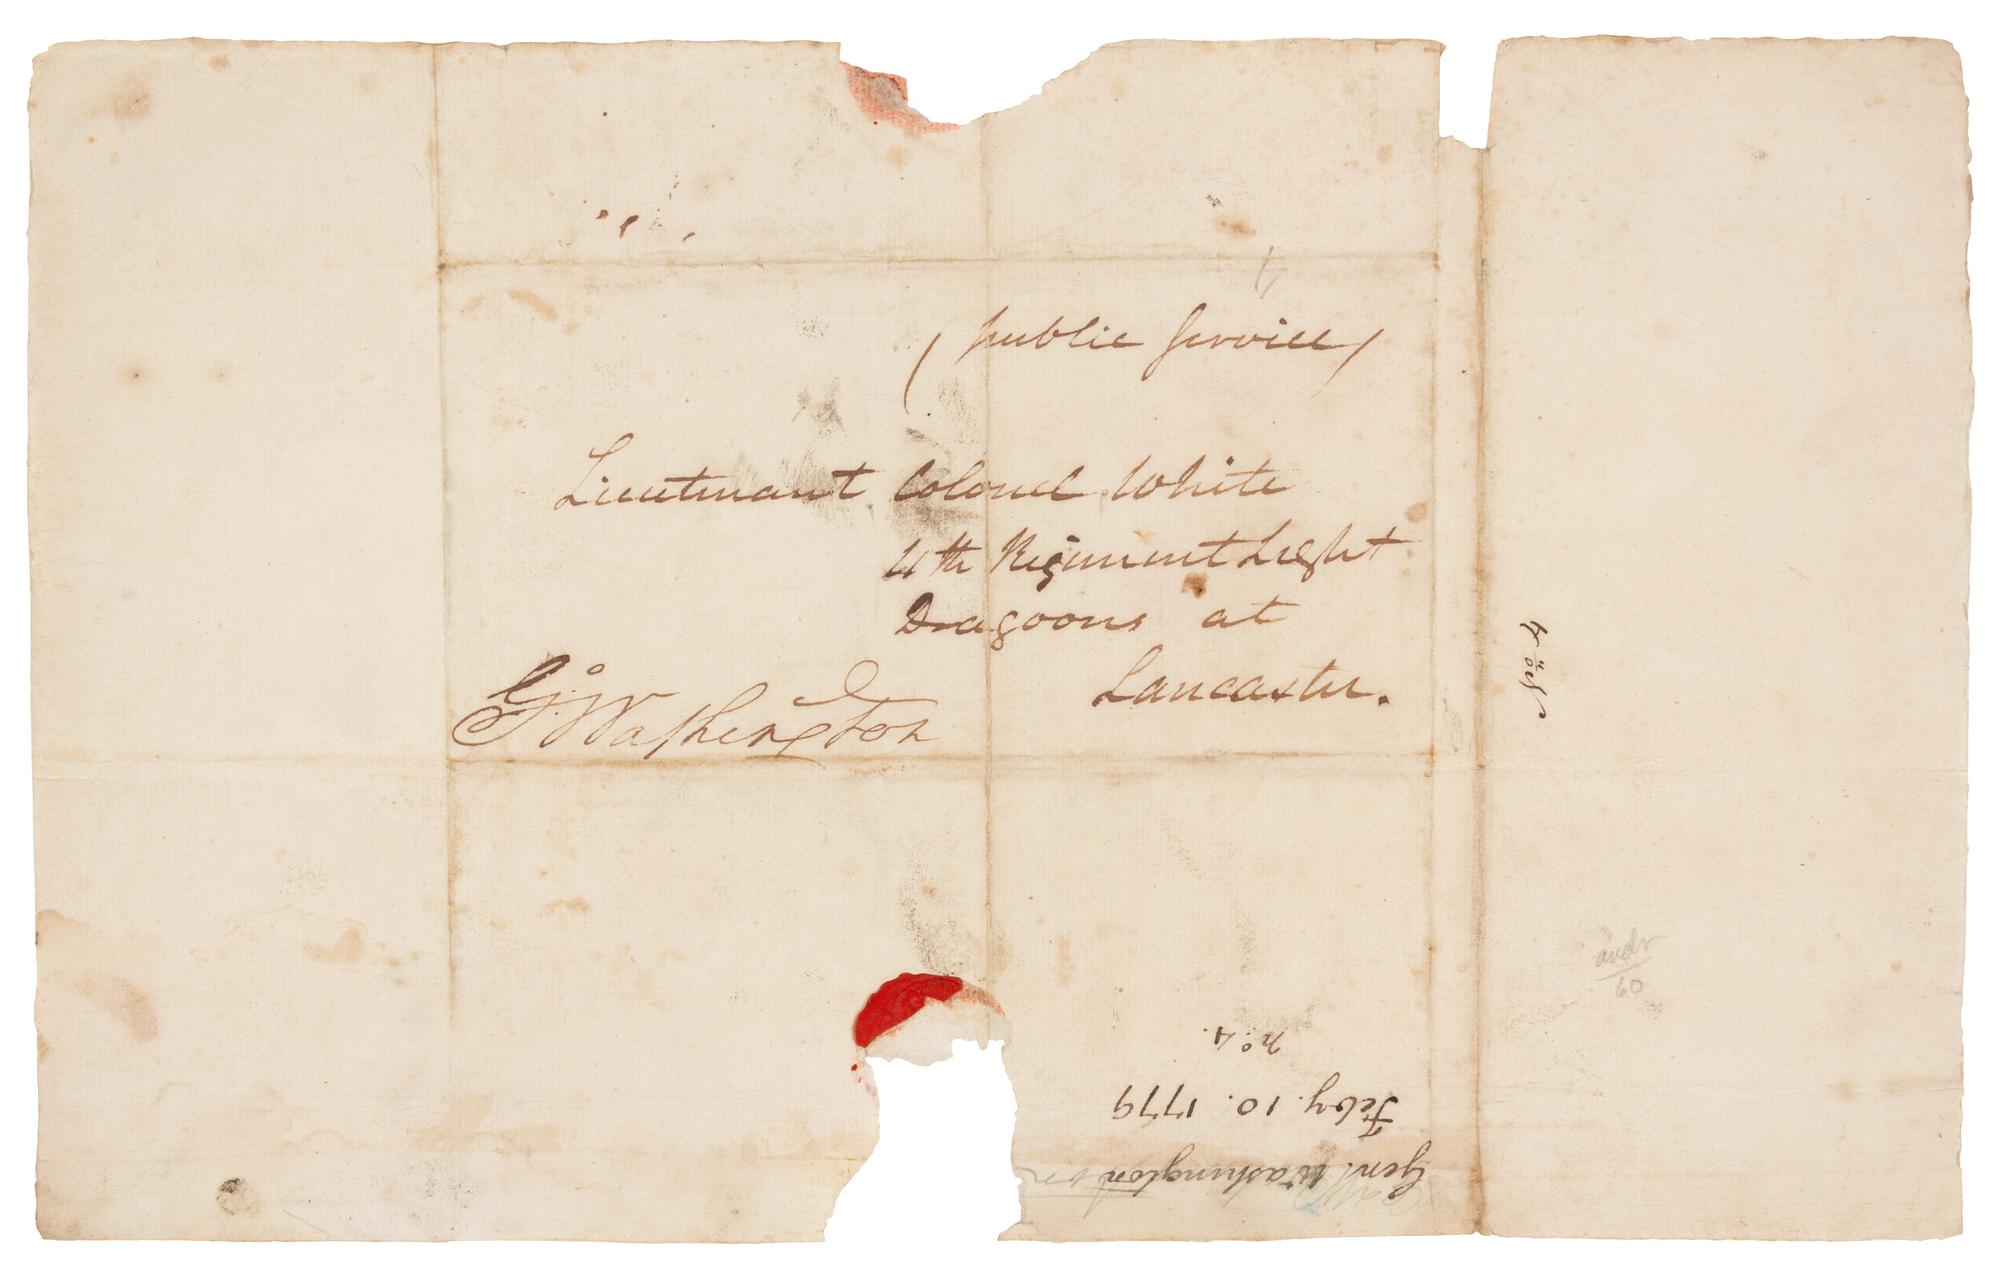 (public Service)
Lieutenant Colonel White
4th Regiment Light
Dragoons at
Lancaster.
Go: Washington
No. 4
Genl. Washington
Feby. 10. 1779
No. 4.
60